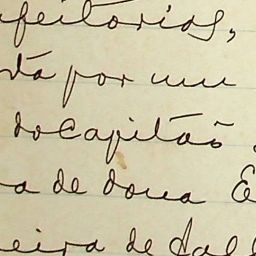 feitorios,
da por um
do Capitão
a de dona E
eira de